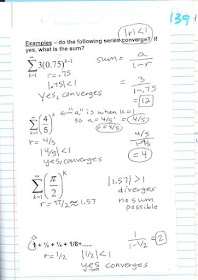 139
|r| < 1
Examples – do the following series converge? If
yes, what is the sum?
sum = a/(1-r)
∞ Σ k=1 3(0.75)^(k-1)
r = .75
|.75| < 1
yes, converges
3/(1-.75)
= 12
∞ Σ k=1 (4/5)^k
← "a" is when k=1
so a = 4/5' (4/5)
r = 4/5
r = 4/5
|4/5| < 1
yes, converges
4/5 / (1-4/5)
= 4
∞ Σ k=1 (π/2)^k
r = π/2 ≈ 1.57
|1.57| > 1
diverges
no sum
possible
a
1 + ½ + ¼ + 1/8+.....
r = ½ |½| < 1
yes converges
1/(1-½) = 2